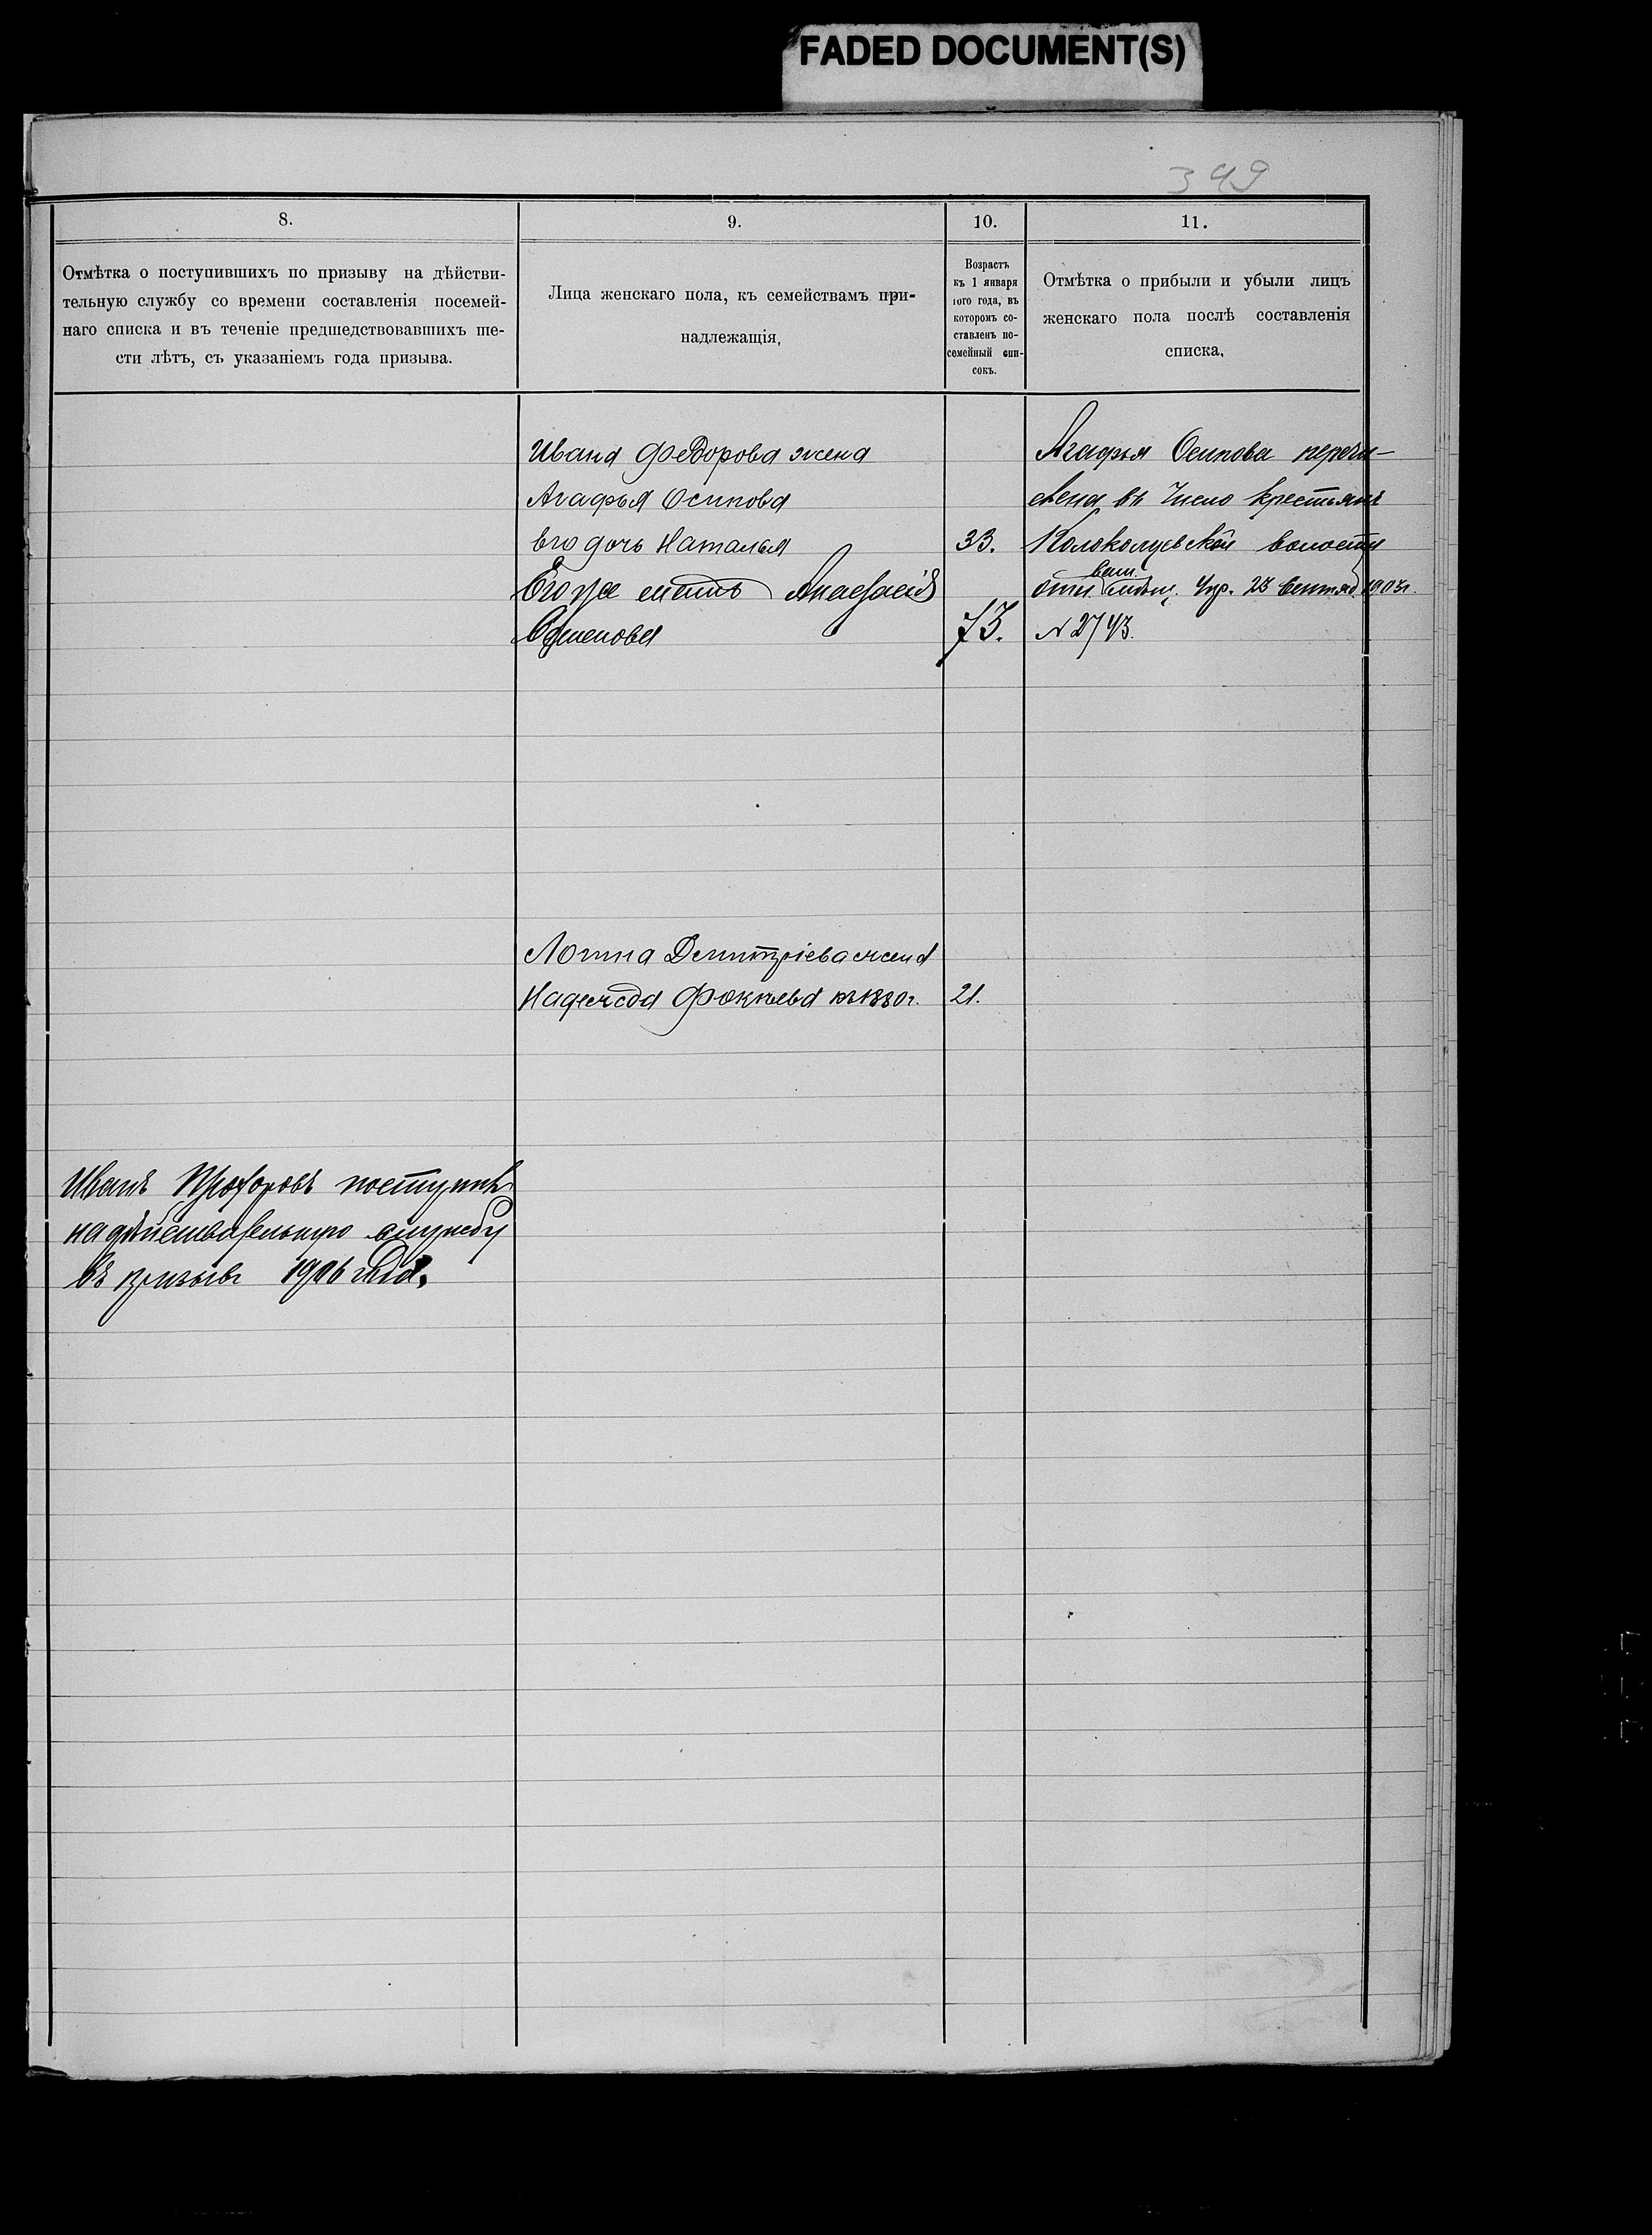 FADED DOCUMENT(S)
349
8.
Отмѣтка о поступившихъ по призыву на дѣйстви-
тельную службу со времени составленія посемей-
наго списка и въ теченіе предшедствовавшихъ ше-
сти лѣтъ, съ указаніемъ года призыва.
9.
Лица женскаго пола, къ семействамъ при-
надлежащія,
10.
Возрастъ
къ 1 января
того года, въ
которомъ со-
ставленъ по-
семейный спи-
сокъ.
11.
Отмѣтка о прибыли и убыли лицъ
женскаго пола послѣ составленія
списка,
Ивана Федорова жена
Агафья Осипова
его дочь Наталья 33.
Его же мать Анастасія
Семенова 73.
Агафья Осипова перечи-
слена въ число крестьянъ
Колоколуевской волости
отн. мѣщ. Упр. 23 Сентяб. 1903г.
N 2743.
Логина Дмитріева жена
Надежда Фокиева къ 1880г. 21.
Иванъ Прохоровъ поступилъ
на дѣйствительную службу
въ призывъ 1906 года.